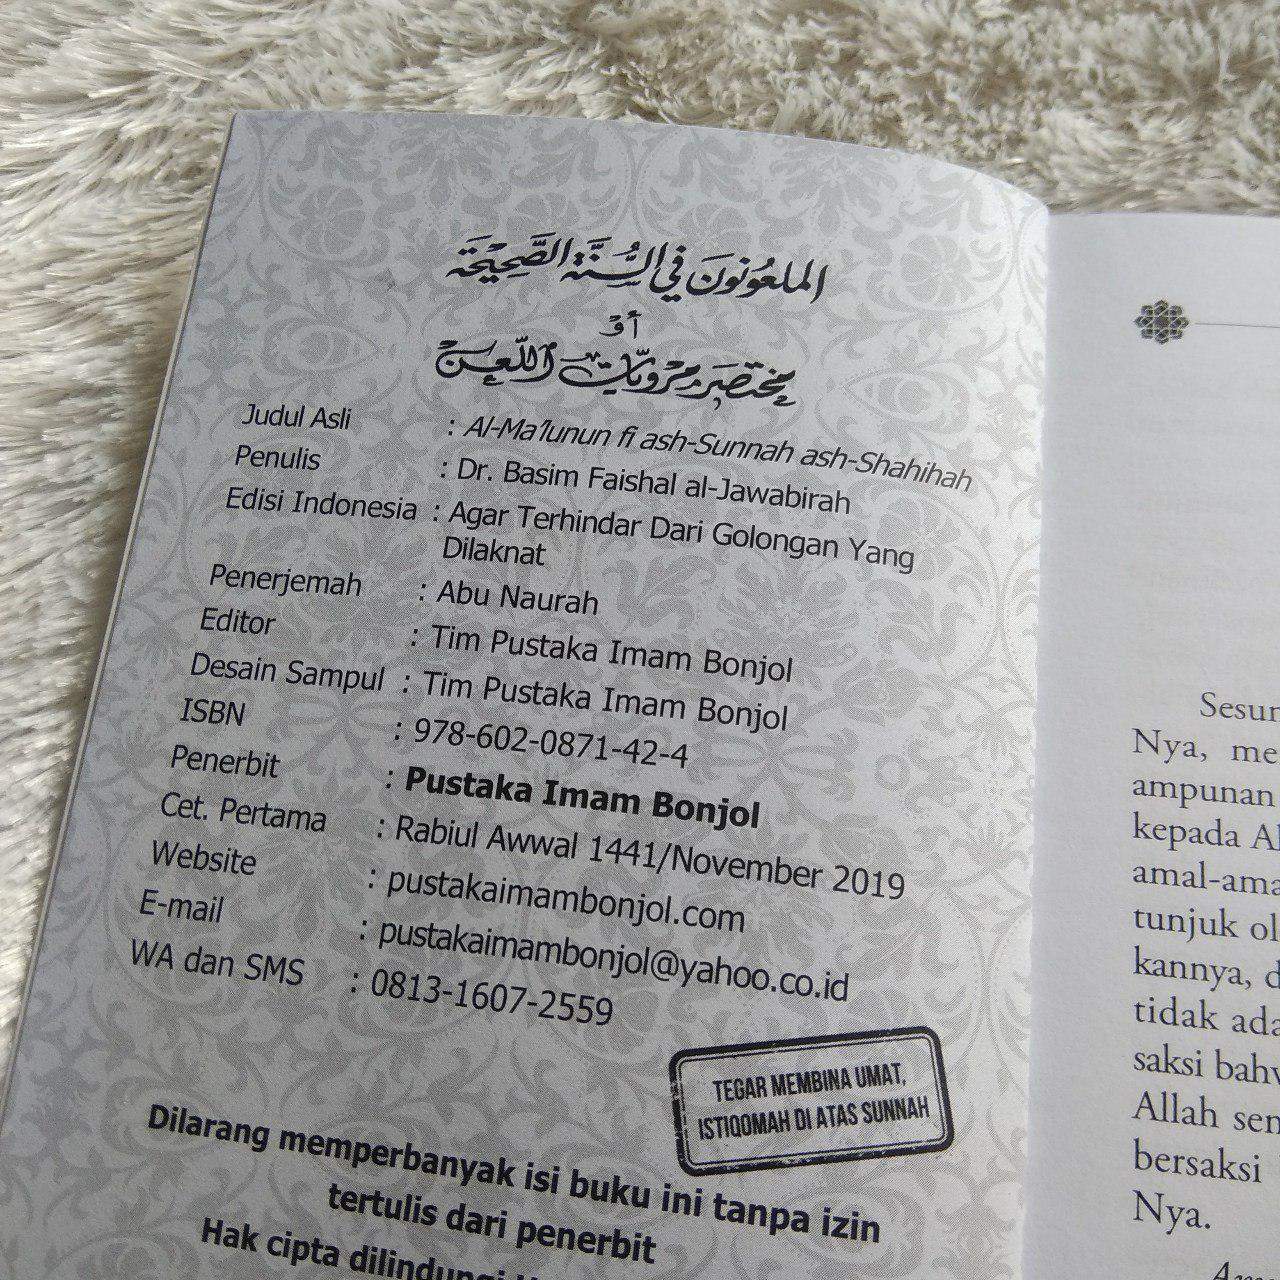 الملعونون في السُّنَّة الصَّحِيحَة
أو
مختصر مرويّات اللّعن
Judul Asli : Al-Ma'lunun fi ash-Sunnah ash-Shahihah
Penulis : Dr. Basim Faishal al-Jawabirah
Edisi Indonesia : Agar Terhindar Dari Golongan Yang
Dilaknat
Penerjemah : Abu Naurah
Editor : Tim Pustaka Imam Bonjol
Desain Sampul : Tim Pustaka Imam Bonjol
ISBN : 978-602-0871-42-4
Penerbit : Pustaka Imam Bonjol
Cet. Pertama : Rabiul Awwal 1441/November 2019
Website : pustakaimambonjol.com
E-mail : pustakaimambonjol@yahoo.co.id
WA dan SMS : 0813-1607-2559
TEGAR MEMBINA UMAT,
ISTIQOMAH DI ATAS SUNNAH
Dilarang memperbanyak isi buku ini tanpa izin
tertulis dari penerbit
Hak cipta dilindungi
Nya,
ampunan
kepada
tunjuk
kannya,
tidak
saksi
Allah
bersaksi
Nya.